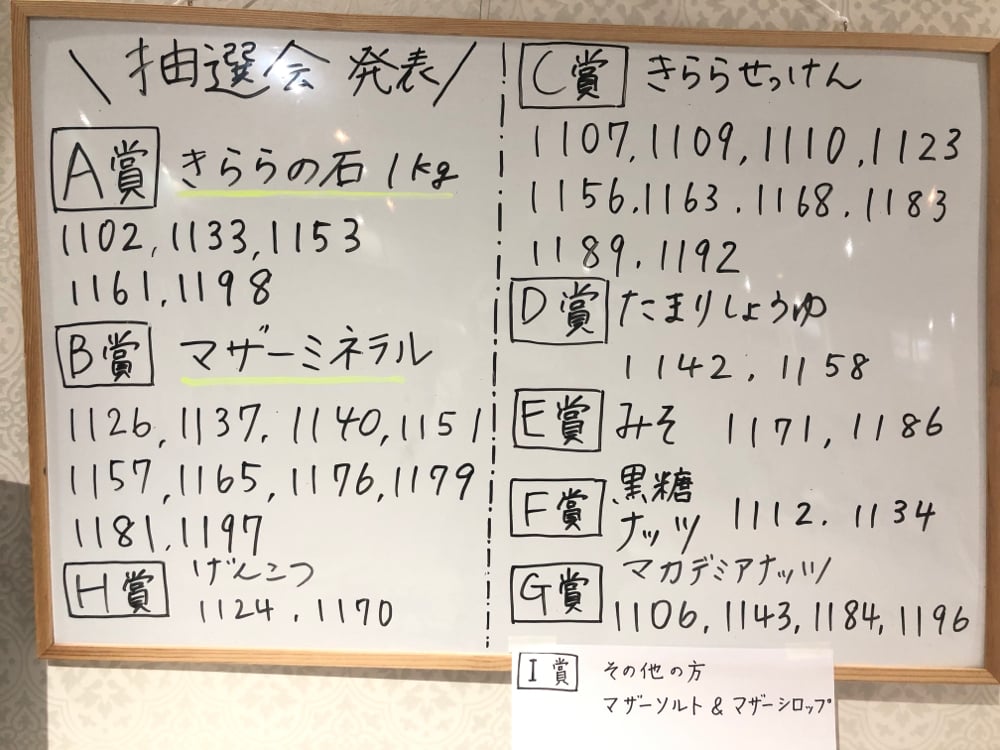 \ 抽選会 発表 /
A賞 きららの石 1kg
1102, 1133, 1153
1161, 1198
B賞 マザーミネラル
1126, 1137, 1140, 1151
1157, 1165, 1176, 1179
1181, 1197
H賞 げんこつ
1124, 1170
C賞 きららせっけん
1107, 1109, 1110, 1123
1156, 1163, 1168, 1183
1189, 1192
D賞 たまりしょうゆ
1142, 1158
E賞 みそ 1171, 1186
F賞 黒糖
ナッツ 1112, 1134
G賞 マカデミアナッツ
1106, 1143, 1184, 1196
I賞 その他の方
マザーソルト & マザーシロップ